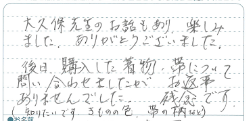 大久保先生のお話もあり 楽しみ
ました。ありがとうございました。
後日、購入した着物、帯について
問い合わせましたが お返事
ありませんでした。 残念です。
(知りたいです。きものの色、帯の柄など)
■お名前